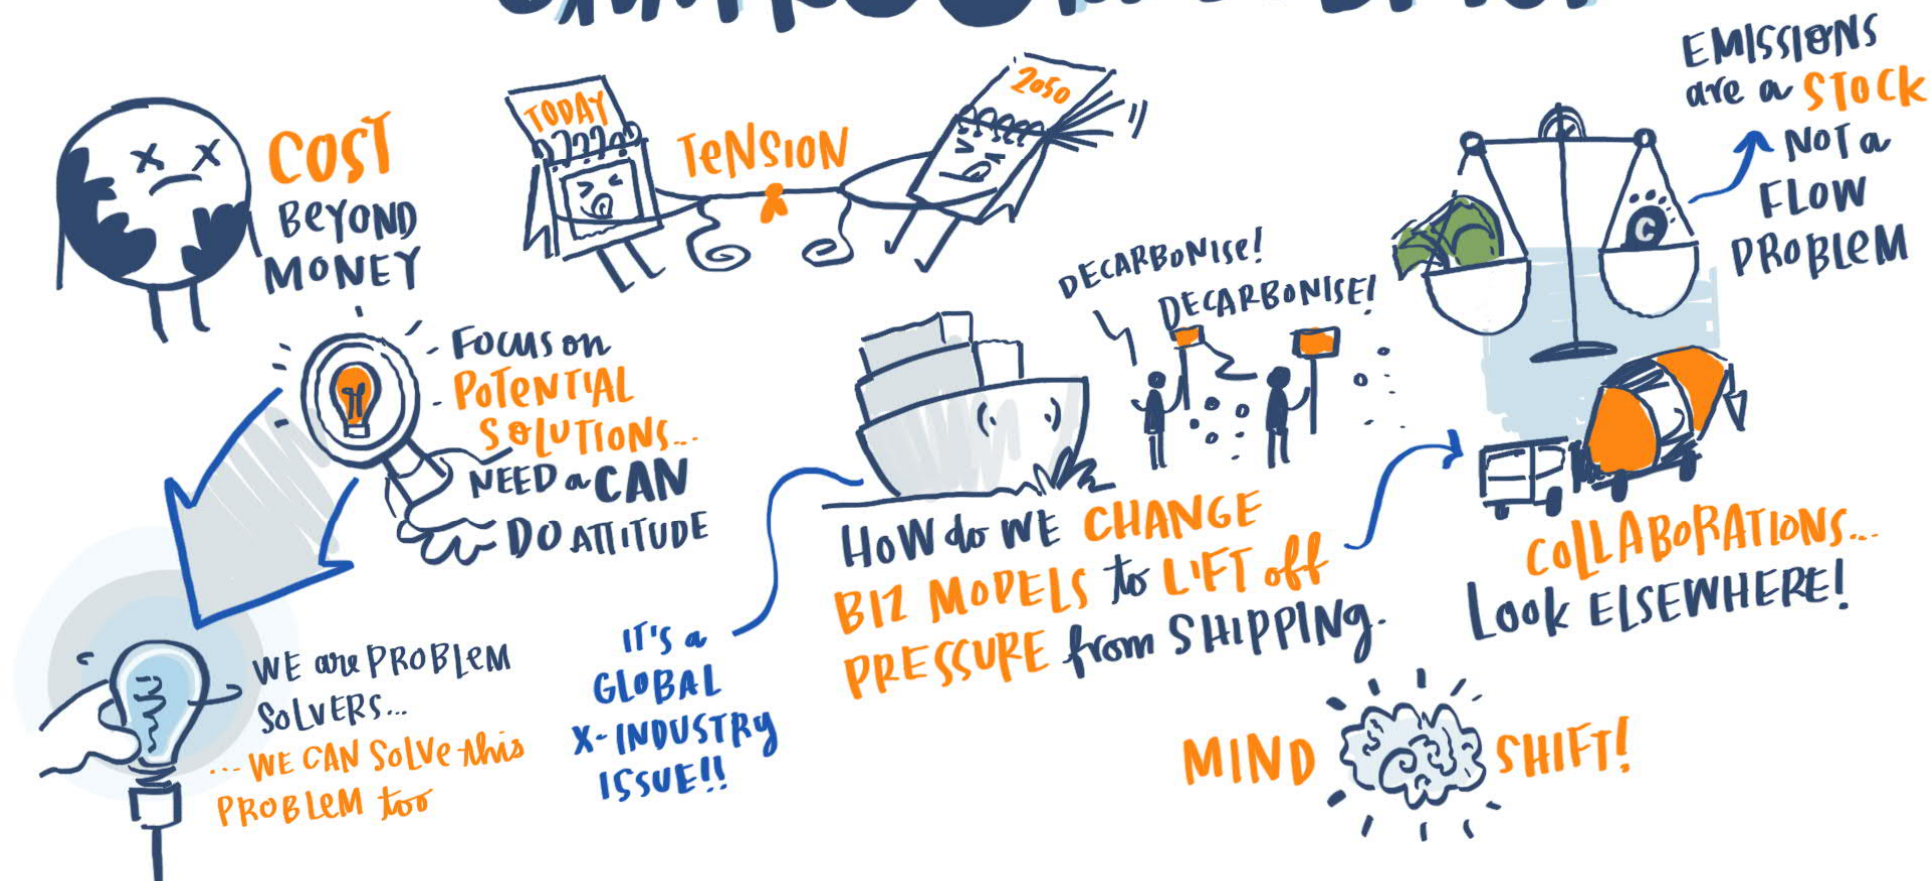 COST
BEYOND
MONEY
TODAY
TENSION
2050
EMISSIONS
are a STOCK
NOT a
FLOW
PROBLEM
C
- FOCUS on
- POTENTIAL
SOLUTIONS...
NEED a CAN
DO ATTITUDE
DECARBONISE!
DECARBONISE!
HOW do WE CHANGE
BIZ MODELS to LIFT off
PRESSURE from SHIPPING.
COLLABORATIONS...
LOOK ELSEWHERE!
WE are PROBLEM
SOLVERS...
... WE CAN SOLVE this
PROBLEM too
IT'S a
GLOBAL
X-INDUSTRY
ISSUE!!
MIND SHIFT!